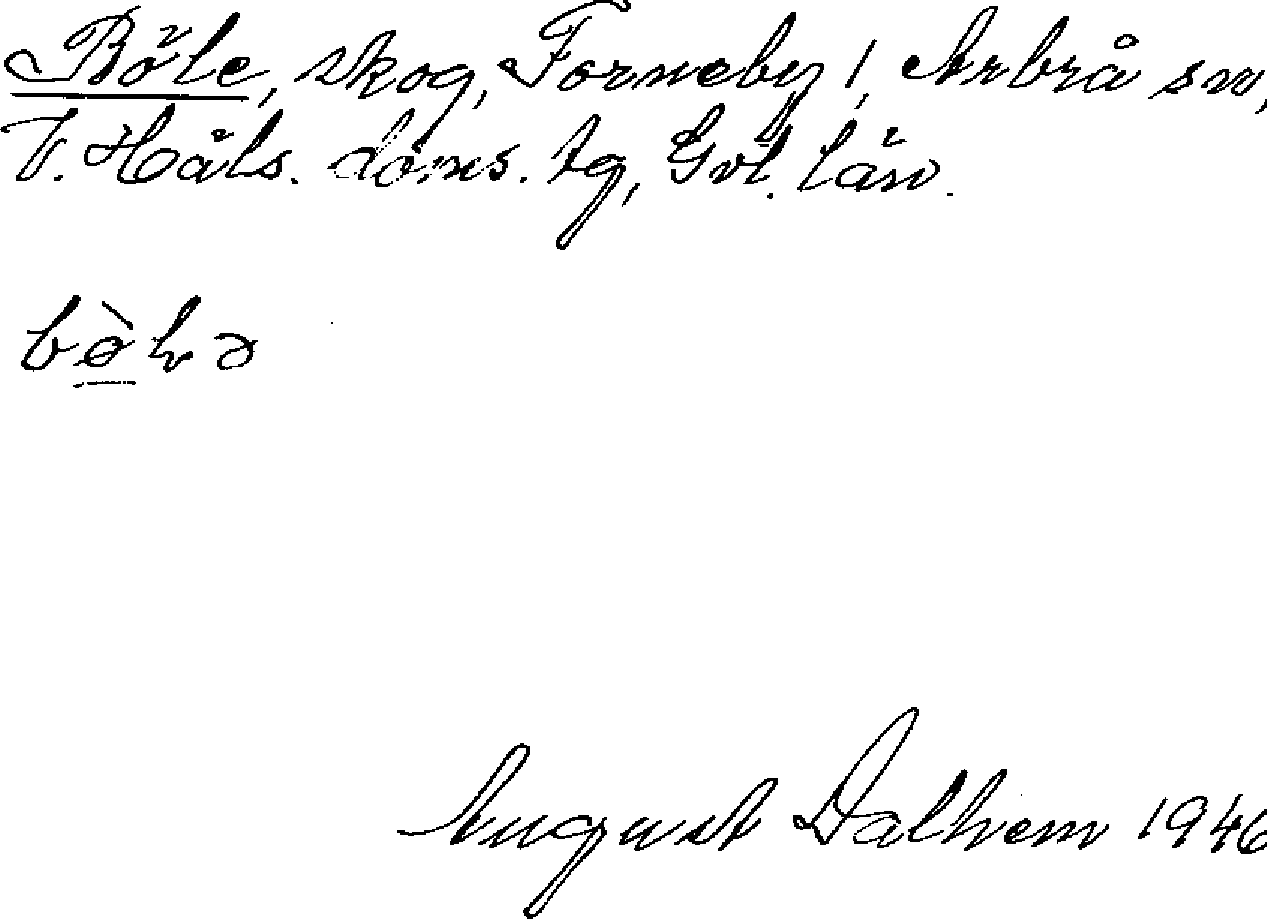 Böle, skog, Forneby 1, Arbrå sn,
V. Häls. doms. tg, Gvl. län.
bø̀lə
August Dalhem 1946